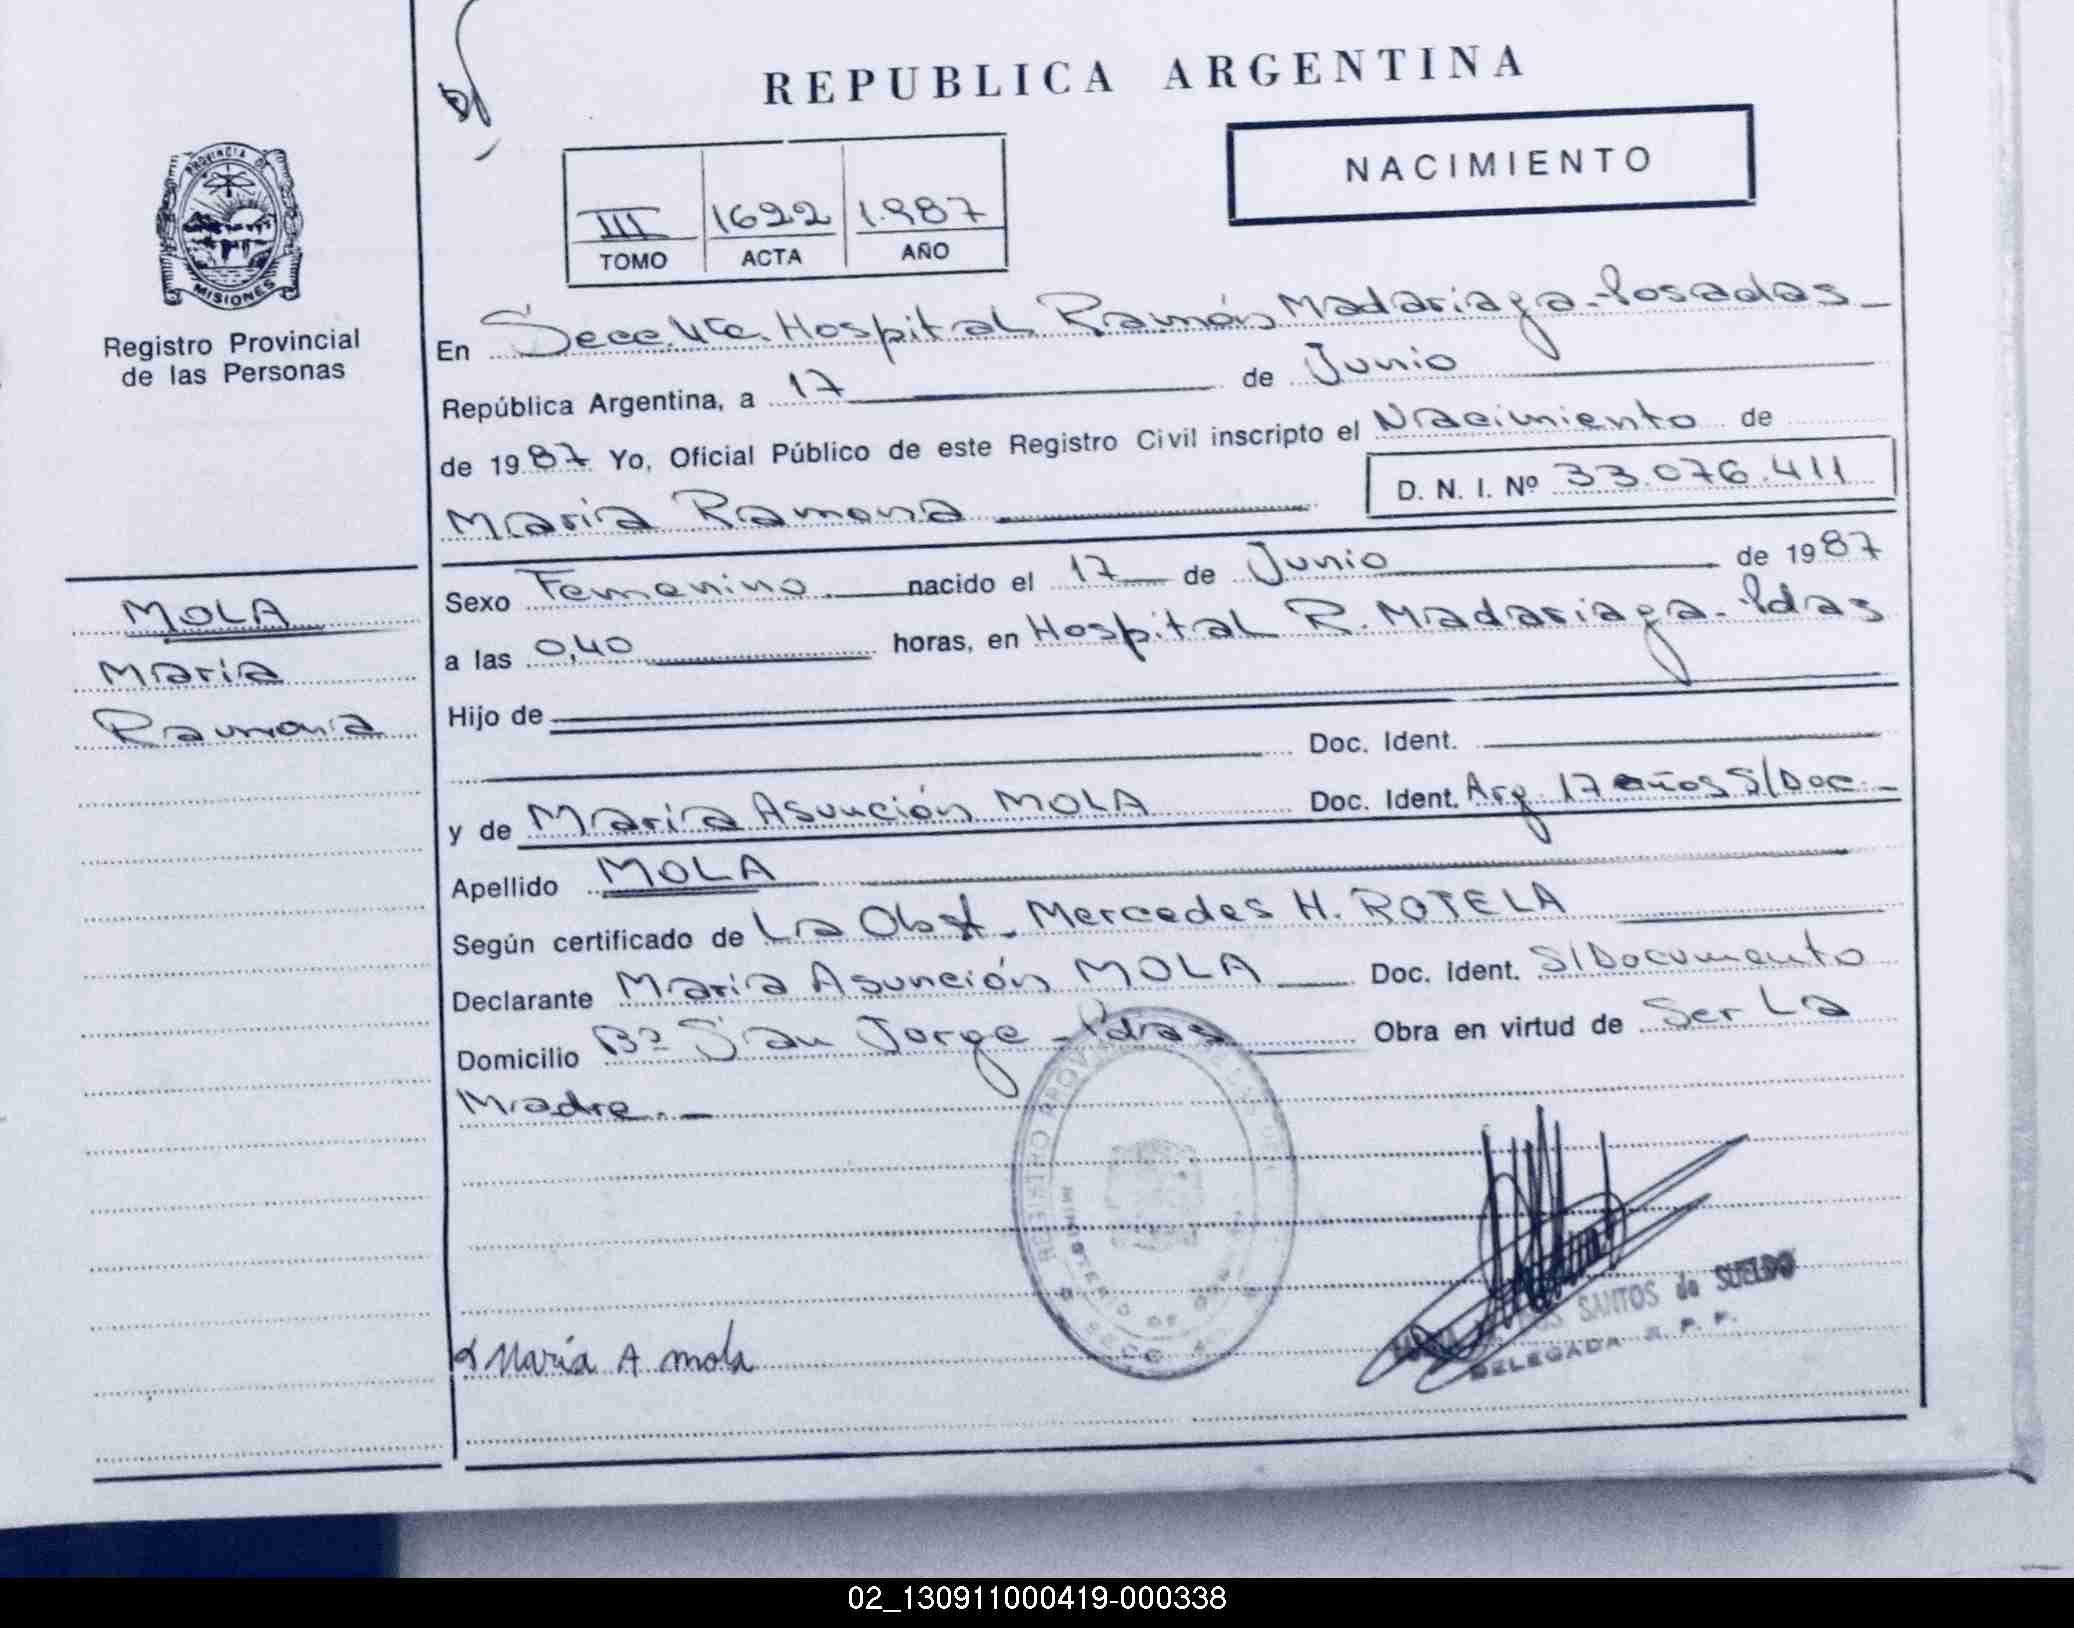 REPUBLICA ARGENTINA
NACIMIENTO
III 1622 1987
TOMO ACTA AÑO
PROVINCIA DE
MISIONES
Registro Provincial
de las Personas
MOLA
María
Ramona
En Secc. Hospital Ramón Madariaga - Posadas -
República Argentina, a 17 de Junio
de 1987 Yo, Oficial Público de este Registro Civil inscripto el Nacimiento de
María Ramona D. N. I. Nº 33.076.411
Sexo Femenino nacido el 17 de Junio de 1987
a las 0,40 horas, en Hospital R. Madariaga - Pdas
Hijo de
Doc. Ident.
y de María Asunción MOLA Doc. Ident. Arg 17 años S/Doc. -
Apellido MOLA
Según certificado de La Obst. Mercedes H. ROTELA
Declarante María Asunción MOLA Doc. Ident. S/Documento
Domicilio Bº San Jorge - Pdas Obra en virtud de Ser La
Madre. -
REGISTRO
SANTOS de SUELDO
DELEGADA R. P. P.
María A mola
02_130911000419-000338